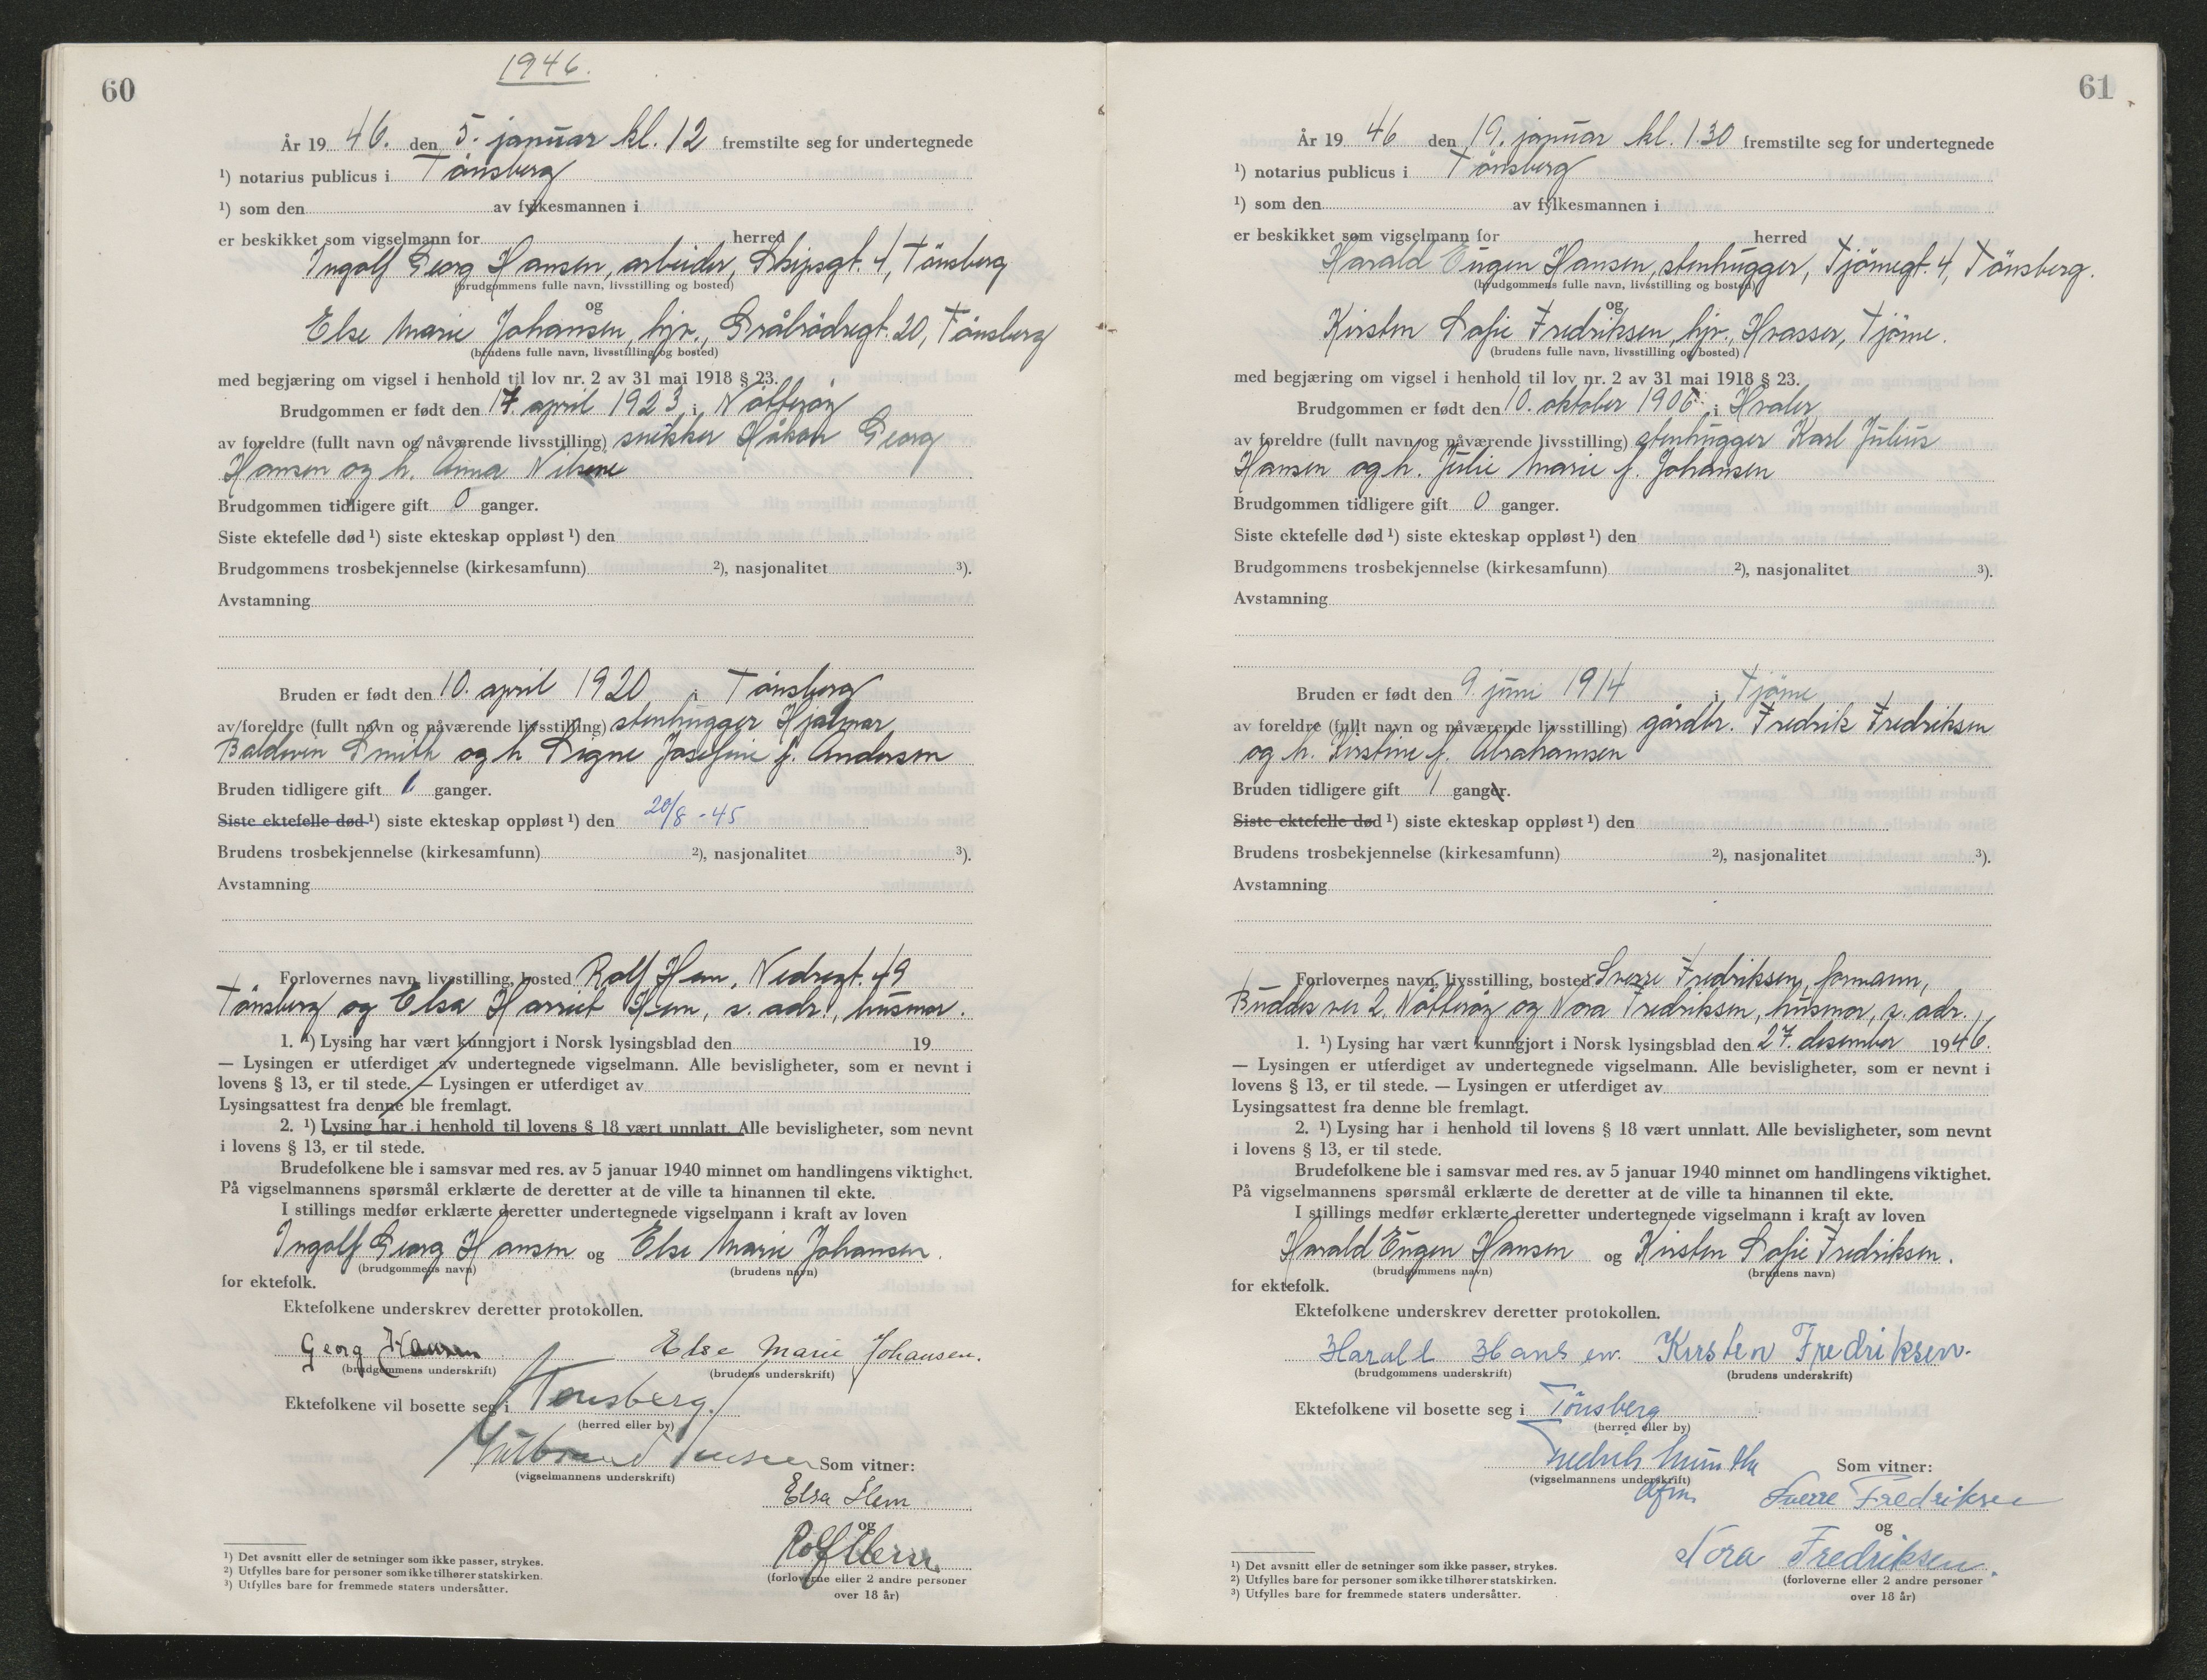 60
1946.
År 19 46. den 5. januar kl. 12 fremstilte seg for undertegnede
¹) notarius publicus i Tönsberg
¹) som den av fylkesmannen i
er beskikket som vigselmann for herred
Ingolf Georg Hansen, arbeider, Skipsgt. 4, Tönsberg
(brudgommens fulle navn, livsstilling og bosted)
og
Else Marie Johansen, hjv., Gråbrödregt. 20, Tönsberg
(brudens fulle navn, livsstilling og bosted)
med begjæring om vigsel i henhold til lov nr. 2 av 31 mai 1918 § 23.
Brudgommen er født den 17. april 1923 i Nötteröy
av foreldre (fullt navn og nåværende livsstilling) snekker Håkon Georg
Hansen og h. Anna
Brudgommen tidligere gift 0 ganger.
Siste ektefelle død ¹) siste ekteskap oppløst ¹) den
Brudgommens trosbekjennelse (kirkesamfunn) ²), nasjonalitet ³).
Avstamning
Bruden er født den 10. april 1920 i Tönsberg
av foreldre (fullt navn og nåværende livsstilling) stenhugger Hjalmar
Baldwin Smith og h Signe Josefine f. Andersen
Bruden tidligere gift 1 ganger.
Siste ektefelle død ¹) siste ekteskap oppløst ¹) den 20/8 - 45
Brudens trosbekjennelse (kirkesamfunn) ²), nasjonalitet ³).
Avstamning
Forlovernes navn, livsstilling, bosted Rolf Hem, Nedregt. 49
Tönsberg og Elsa Harriet Hem, s. adr., husmor.
1. ¹) Lysing har vært kunngjort i Norsk lysingsblad den 19
— Lysingen er utferdiget av undertegnede vigselmann. Alle bevisligheter, som er nevnt i
lovens § 13, er til stede. — Lysingen er utferdiget av
Lysingsattest fra denne ble fremlagt.
2. ¹) Lysing har i henhold til lovens § 18 vært unnlatt. Alle bevisligheter, som nevnt
i lovens § 13, er til stede.
Brudefolkene ble i samsvar med res. av 5 januar 1940 minnet om handlingens viktighet.
På vigselmannens spørsmål erklærte de deretter at de ville ta hinannen til ekte.
I stillings medfør erklærte deretter undertegnede vigselmann i kraft av loven
Ingolf Georg Hansen og Else Marie Johansen.
(brudgommens navn) (brudens navn)
for ektefolk.
Ektefolkene underskrev deretter protokollen.
Georg Hansen Else Marie Johansen.
(brudgommens underskrift) (brudens underskrift)
Ektefolkene vil bosette seg i Tønsberg.
(herred eller by)
Som vitner:
(vigselmannens underskrift)
Elsa Hem
og
Rolf Hem
(forloverne eller 2 andre personer
over 18 år)
¹) Det avsnitt eller de setninger som ikke passer, strykes.
²) Utfylles bare for personer som ikke tilhører statskirken.
³) Utfylles bare for fremmede staters undersåtter.
61
År 19 46 den 19. januar kl. 1.30 fremstilte seg for undertegnede
¹) notarius publicus i Tönsberg
¹) som den av fylkesmannen i
er beskikket som vigselmann for herred
Harald Eugen Hansen, stenhugger, Tjömegt. 4, Tönsberg.
(brudgommens fulle navn, livsstilling og bosted)
og
Kirsten Sofie Fredriksen, hjv., Hvasser, Tjöme.
(brudens fulle navn, livsstilling og bosted)
med begjæring om vigsel i henhold til lov nr. 2 av 31 mai 1918 § 23.
Brudgommen er født den 10. oktober 1906 i Hvaler
av foreldre (fullt navn og nåværende livsstilling) stenhugger Karl Julius
Hansen og h. Julie Marie f. Johansen
Brudgommen tidligere gift 0 ganger.
Siste ektefelle død ¹) siste ekteskap oppløst ¹) den
Brudgommens trosbekjennelse (kirkesamfunn) ²), nasjonalitet ³).
Avstamning
Bruden er født den 9. juni 1914 i Tjöme
av foreldre (fullt navn og nåværende livsstilling) gårdbr. Fredrik Fredriksen
og h. Kirstine f. Abrahamsen
Bruden tidligere gift 1 ganger.
Siste ektefelle død ¹) siste ekteskap oppløst ¹) den
Brudens trosbekjennelse (kirkesamfunn) ²), nasjonalitet ³).
Avstamning
Forlovernes navn, livsstilling, bosted Sverre Fredriksen, formann,
Buddes vei 2, Nötteröy og Nora Fredriksen, husmor, s. adr.
1. ¹) Lysing har vært kunngjort i Norsk lysingsblad den 27. desember 1946.
— Lysingen er utferdiget av undertegnede vigselmann. Alle bevisligheter, som er nevnt i
lovens § 13, er til stede. — Lysingen er utferdiget av
Lysingsattest fra denne ble fremlagt.
2. ¹) Lysing har i henhold til lovens § 18 vært unnlatt. Alle bevisligheter, som nevnt
i lovens § 13, er til stede.
Brudefolkene ble i samsvar med res. av 5 januar 1940 minnet om handlingens viktighet.
På vigselmannens spørsmål erklærte de deretter at de ville ta hinannen til ekte.
I stillings medfør erklærte deretter undertegnede vigselmann i kraft av loven
Harald Eugen Hansen og Kirsten Sofie Fredriksen.
(brudgommens navn) (brudens navn)
for ektefolk.
Ektefolkene underskrev deretter protokollen.
Harald Hansen. Kirsten Fredriksen.
(brudgommens underskrift) (brudens underskrift)
Ektefolkene vil bosette seg i Tönsberg
(herred eller by)
Fredrik Munthe Som vitner:
(vigselmannens underskrift)
Sverre Fredriksen
og
Nora Fredriksen.
(forloverne eller 2 andre personer
over 18 år)
¹) Det avsnitt eller de setninger som ikke passer, strykes.
²) Utfylles bare for personer som ikke tilhører statskirken.
³) Utfylles bare for fremmede staters undersåtter.